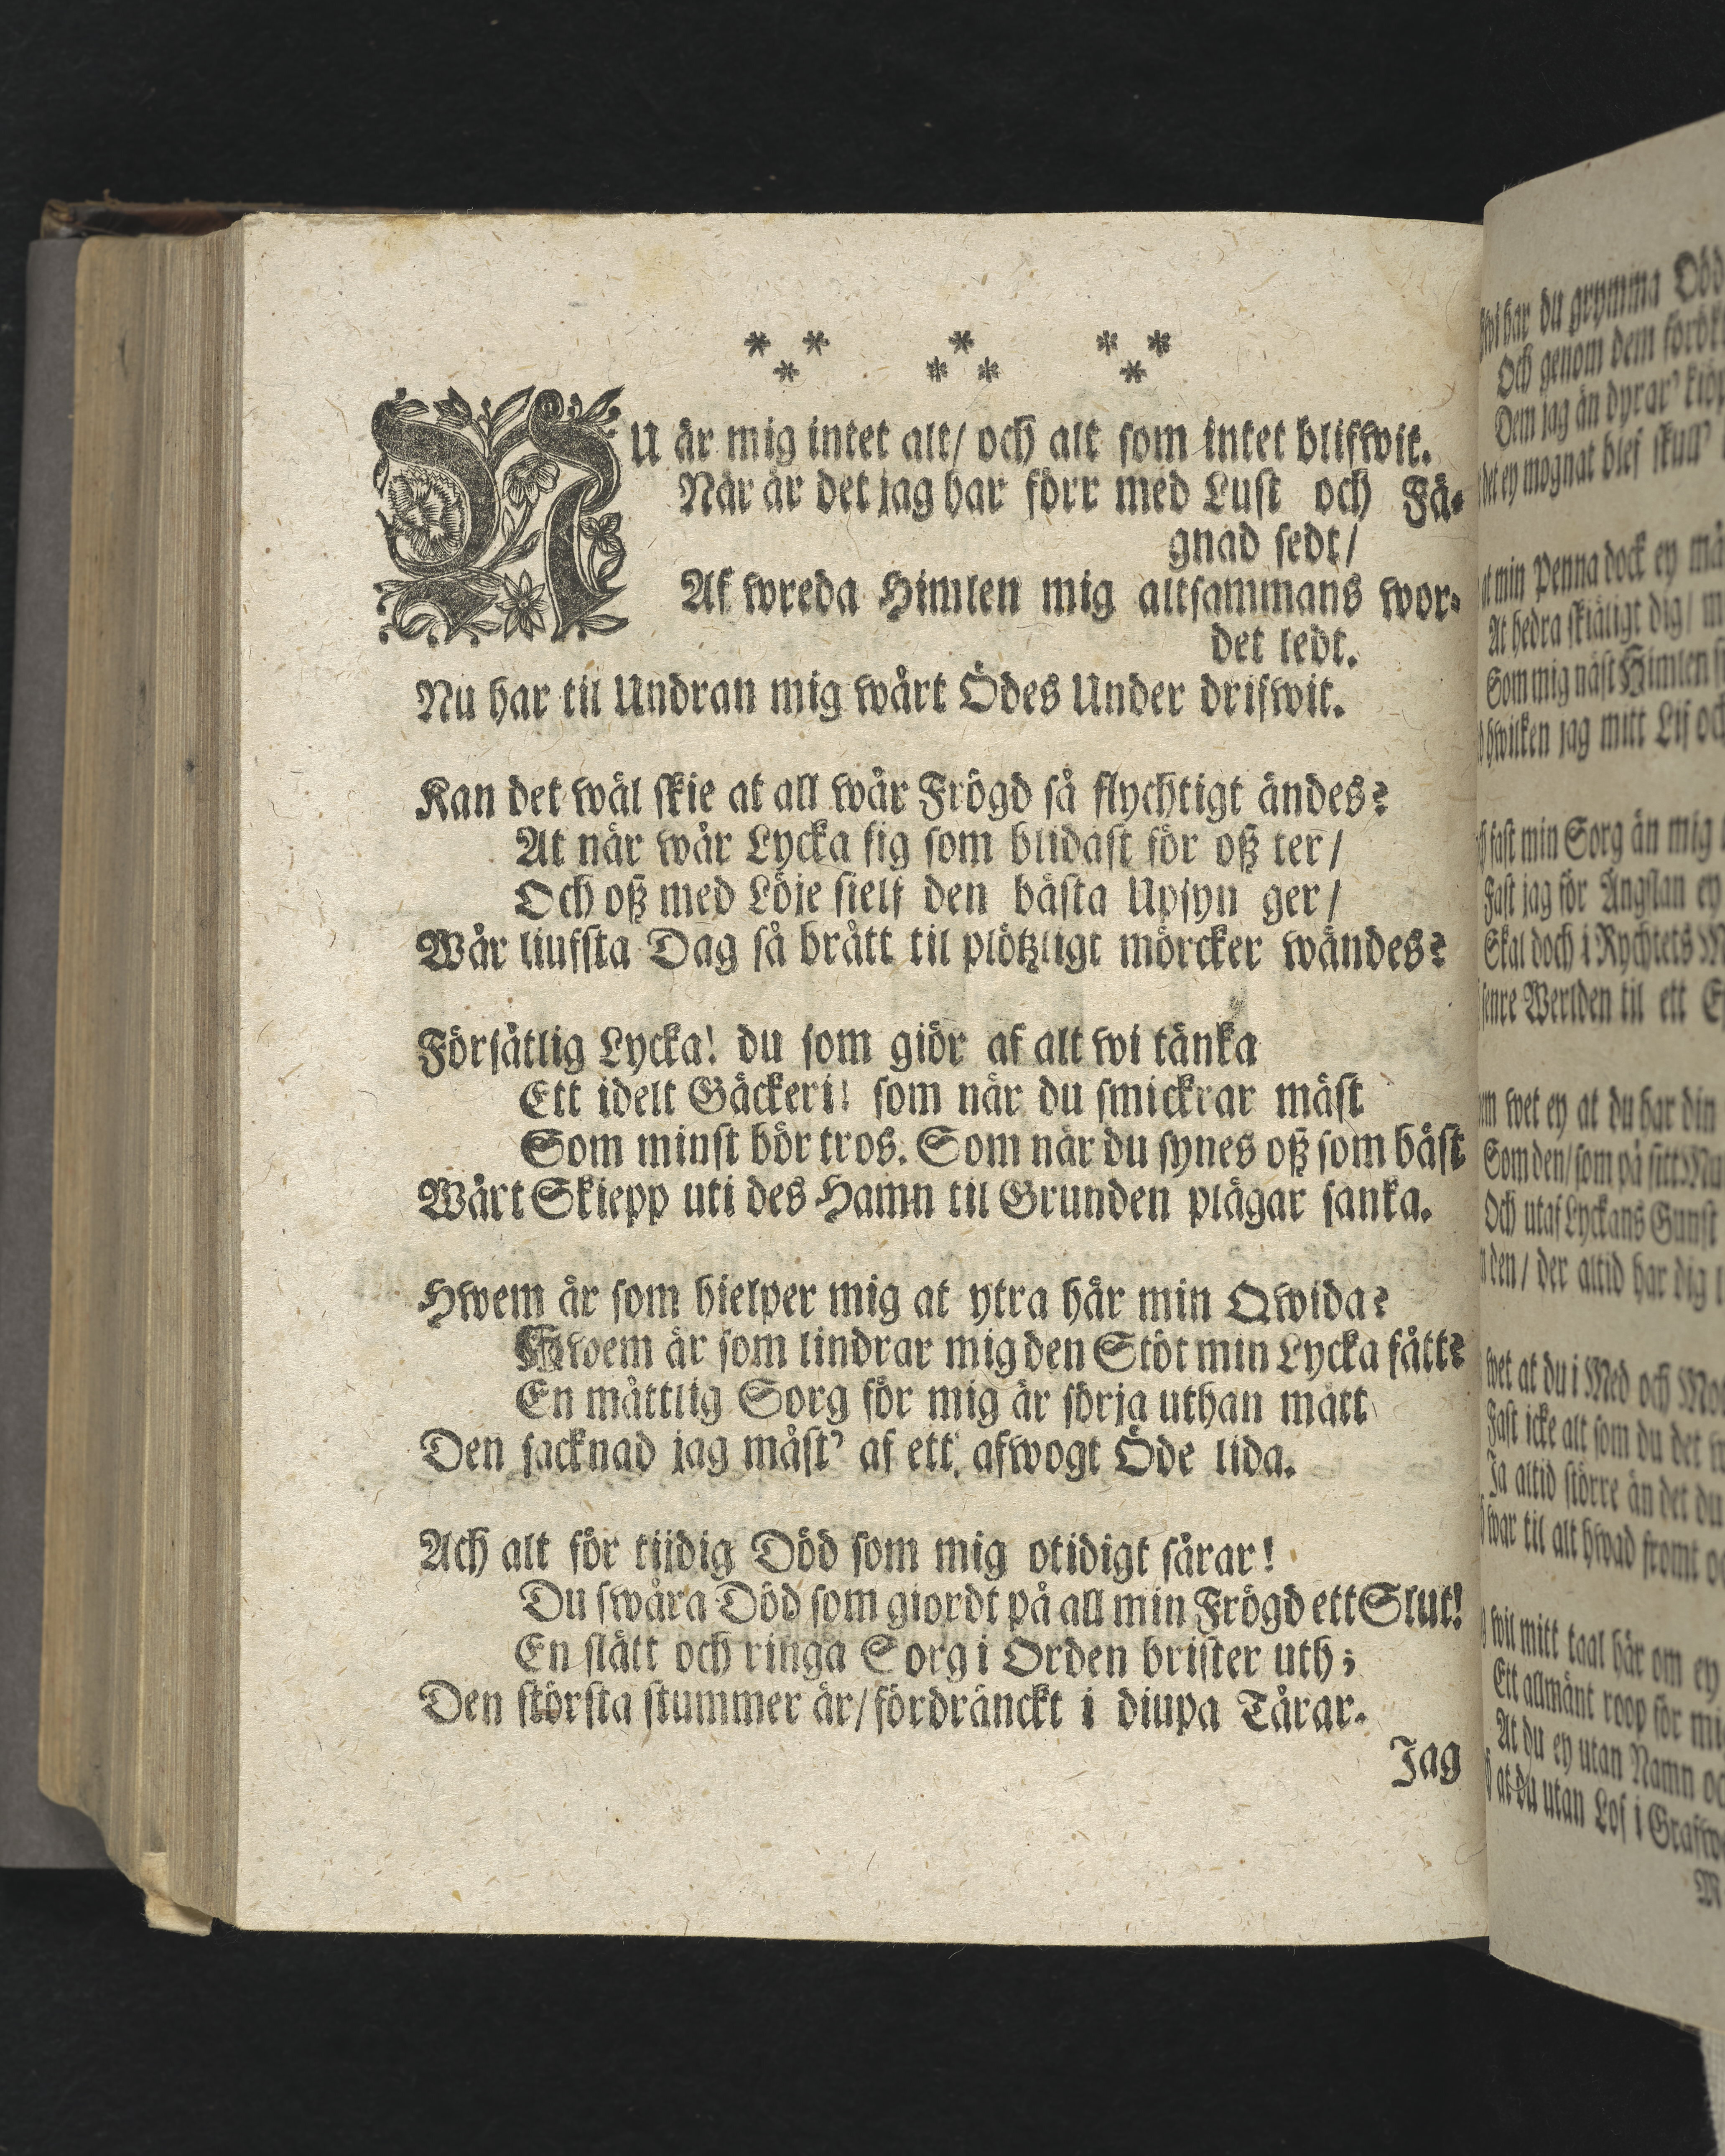 * * * * *
* * * *
NU är mig intet alt/ och alt som intet blifwit.
När är det jag har förr med Lust och Fä-
gnad sedt/
Af wreda Himlen mig altsammans wor-
det ledt.
Nu har til Undran mig wårt Ödes Under drifwit.
Kan det wäl skie at all wår Frögd så flychtigt ändes?
At när wår Lycka sig som blidast för oß ter/
Och oß med Löje sielf den bästa Upsyn ger/
Wår liufsta Dag så brått til plötzligt mörcker wändes?
Försåtlig Lycka! du som giör af alt wi tänka
Ett idelt Gäckeri! som när du smickrar mäst
Som minst bör tros. Som när du synes oß som bäst
Wårt Skiepp uti des Hamn til Grunden plägar sänka.
Hwem är som hielper mig at ytra här min Qwida?
Hwem är som lindrar mig den Stöt min Lycka fått?
En måttlig Sorg för mig är sörja uthan mått
Den sacknad jag måst' af ett afwogt Öde lida.
Ach alt för tijdig Död som mig otidigt sårar!
Du swåra Död som giordt på all min Frögd ett Slut!
En slätt och ringa Sorg i Orden brister uth;
Den största stummer är/ fördränckt i diupa Tårar.
Jag
har du grymma
Och genom dem
Dem jag än dyrar'
ey mognat blef skull'
min Penna dock ey
At hedra skiäligt dig/
Som mig näst Himlen
hwilken jag mitt Lif
fast min Sorg än mig
Fast jag för Ängslan ey
Skal doch i Rychtets
senre Werlden til ett
wet ey at du har din
Som den/ som på sitt
Och utaf Lyckans Gunst
den/ der altid har dig
wet at du i Med och
Fast icke alt som du det
Ja altid större än det du
war til alt hwad fromt
wil mitt taal här om ey
Ett allmänt roop för
At du ey utan Namn
at du utan Lof i